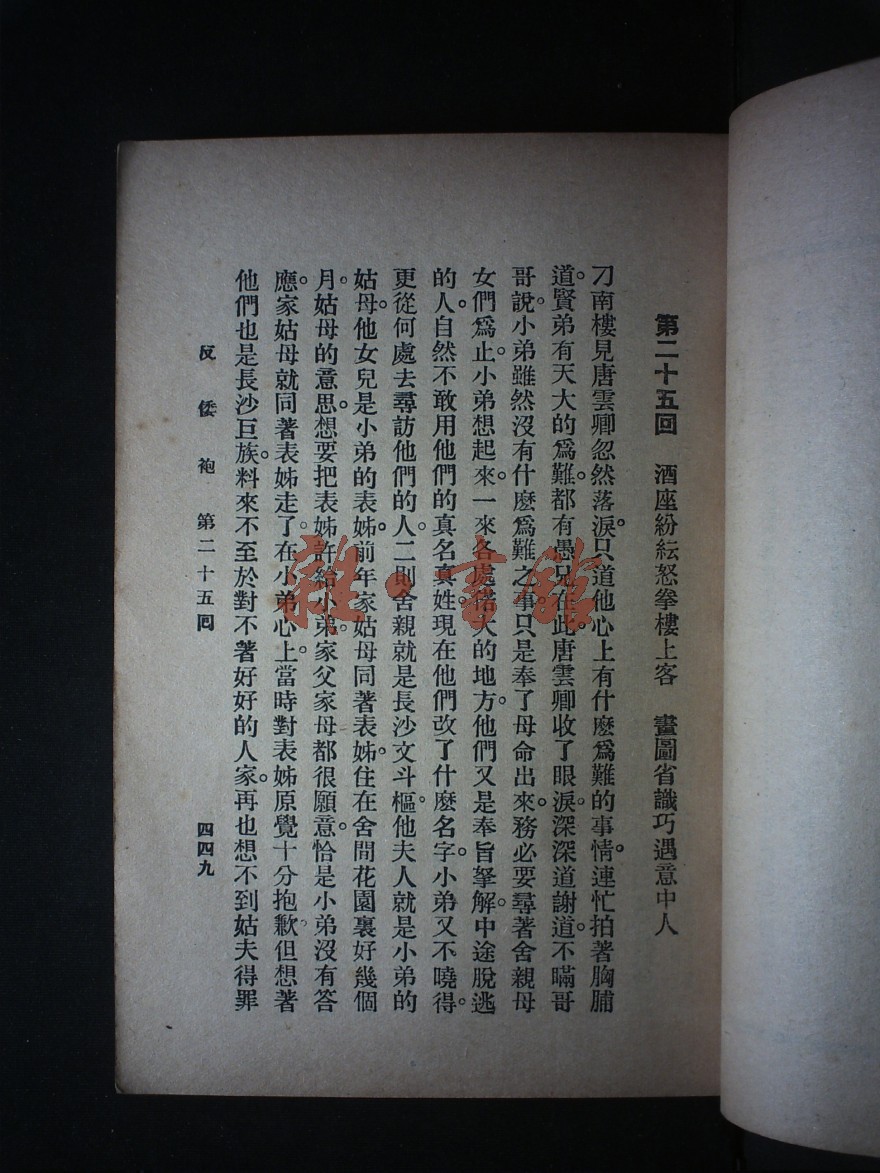 第二十五回　酒座紛紜怒拳樓上客　畫圖省識巧遇意中人
刁南樓見唐雲卿忽然落淚。只道他心上有什麽爲難的事情。連忙拍著胸脯
道。賢弟有天大的爲難。都有愚兄在此。唐雲卿收了眼淚。深深道謝道。不瞞哥
哥說。小弟雖然沒有什麽爲難之事。只是奉了母命出來。務必要尋著舍親母
女們爲止。小弟想起來。一來各處偌大的地方。他們又是奉旨拏解。中途脫逃
的人。自然不敢用他們的真名真姓。現在他們改了什麽名字。小弟又不曉得。
更從何處去尋訪他們的人。二則舍親就是長沙文斗樞。他夫人就是小弟的
姑母。他女兒是小弟的表姊。前年家姑母同著表姊。住在舍間花園裏好幾個
月。姑母的意思。想要把表姊許給小弟。家父家母都很願意。恰是小弟沒有答
應。家姑母就同著表姊走了。在小弟心上。當時對表姊原覺十分抱歉。但想著
他們也是長沙巨族。料來不至於對不著好好的人家。再也想不到姑夫得罪
反倭袍　第二十五回　四四九
雜·書館